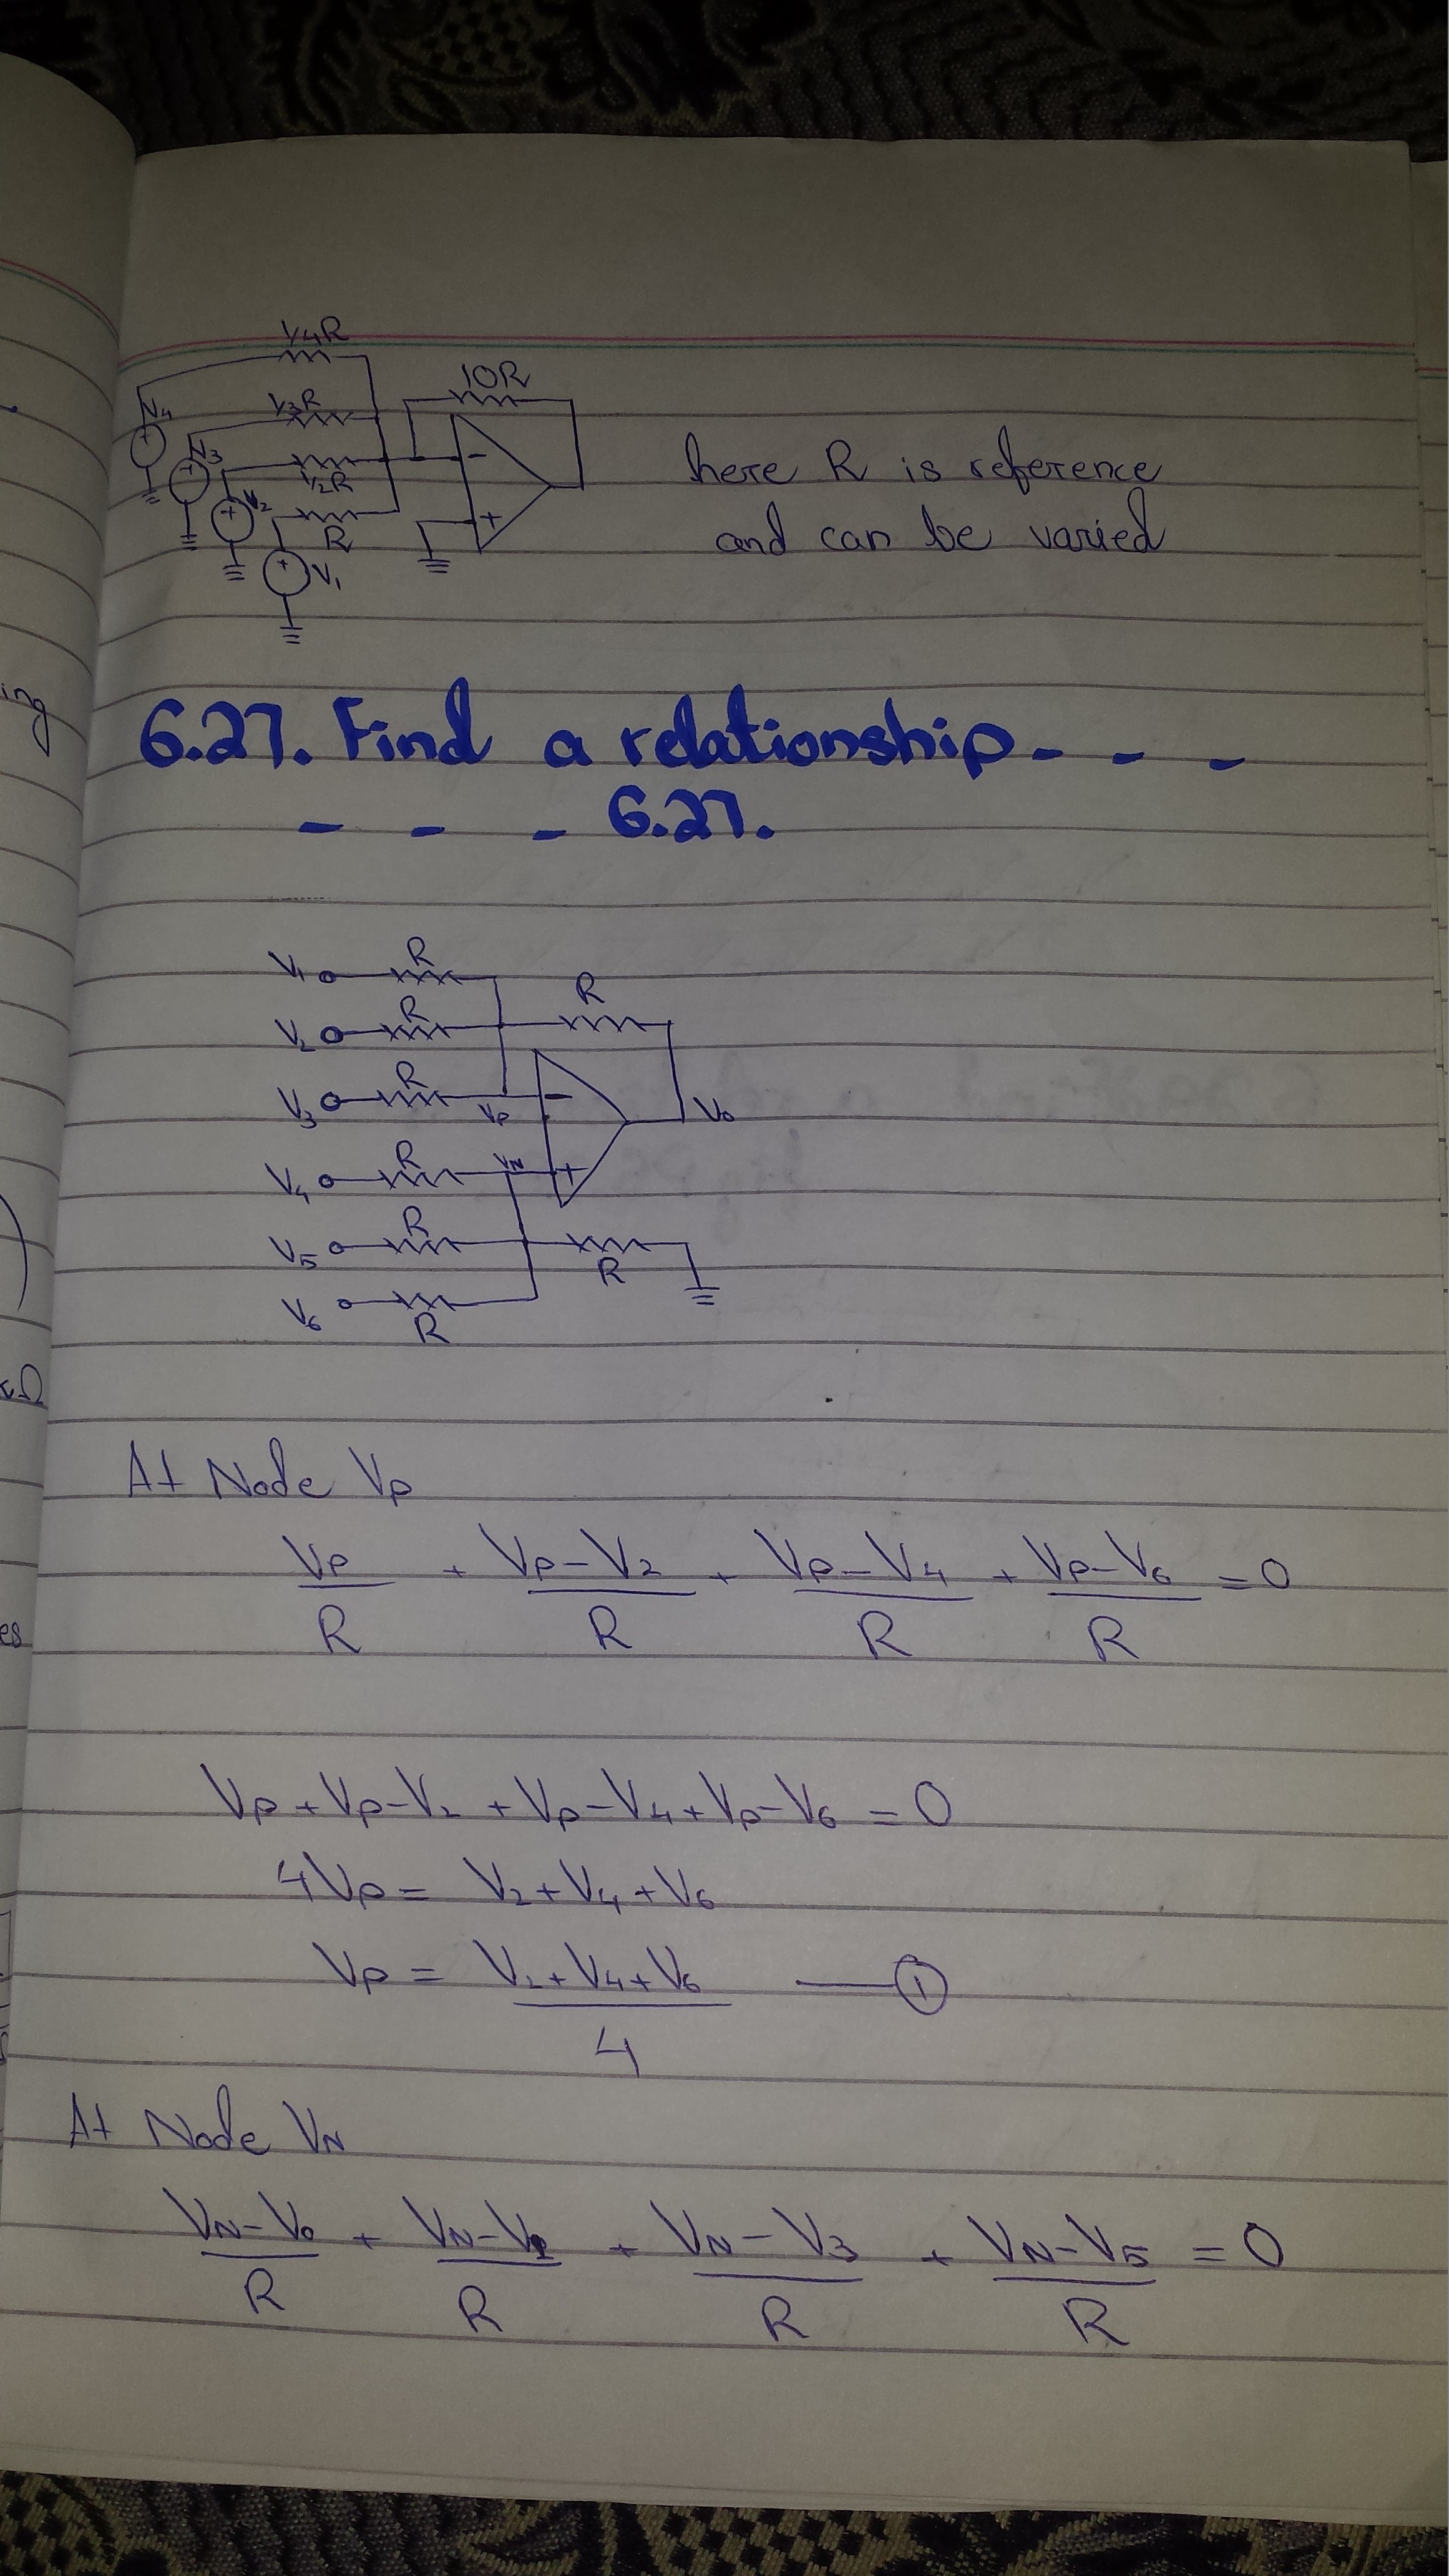 1/4R
10R
V4
1/3R
V3
1/2R
V2
R
V1
-
+
here R is reference
and can be varied
6.27. Find a relationship - - -
- - - 6.27.
V1 R
R
V2 R
V3 R
VP
-
Vo
V4 R
VN
+
V5 R
R
V6
R
At Node VP
VP/R + (VP-V2)/R + (VP-V4)/R + (VP-V6)/R = 0
VP + VP-V2 + VP-V4 + VP-V6 = 0
4VP = V2+V4+V6
VP = (V2+V4+V6)/4 —— ①
At Node VN
(VN-Vo)/R + (VN-V1)/R + (VN-V3)/R + (VN-V5)/R = 0
ing
Ω
es